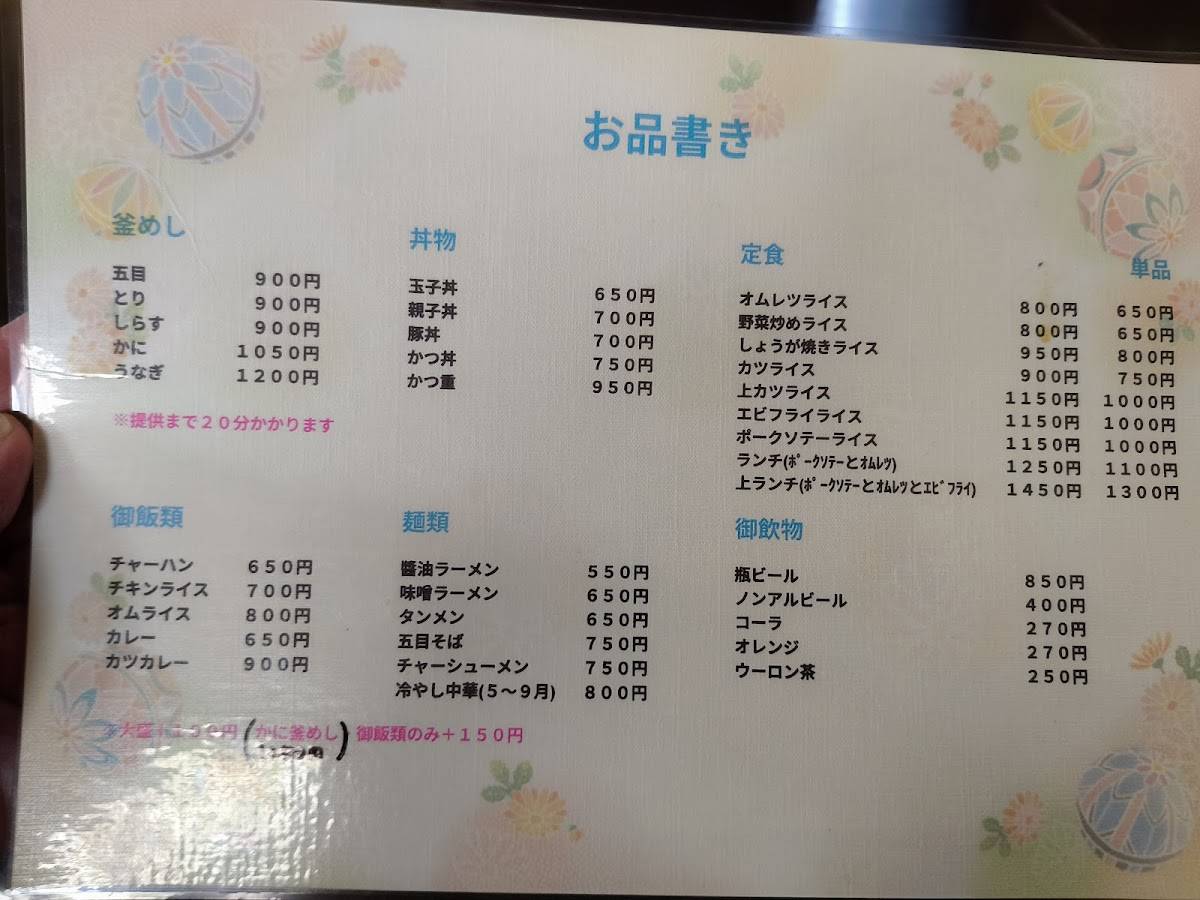 お品書き
釜めし
五目 900円
とり 900円
しらす 900円
かに 1050円
うなぎ 1200円
※提供まで20分かかります
丼物
玉子丼 650円
親子丼 700円
豚丼 700円
かつ丼 750円
かつ重 950円
定食 単品
オムレツライス 800円 650円
野菜炒めライス 800円 650円
しょうが焼きライス 950円 800円
カツライス 900円 750円
上カツライス 1150円 1000円
エビフライライス 1150円 1000円
ポークソテーライス 1150円 1000円
ランチ(ﾎﾟｰｸｿﾃｰとｵﾑﾚﾂ) 1250円 1100円
上ランチ(ﾎﾟｰｸｿﾃｰとｵﾑﾚﾂとｴﾋﾞﾌﾗｲ) 1450円 1300円
御飯類
チャーハン 650円
チキンライス 700円
オムライス 800円
カレー 650円
カツカレー 900円
麺類
醬油ラーメン 550円
味噌ラーメン 650円
タンメン 650円
五目そば 750円
チャーシューメン 750円
冷やし中華(5～9月) 800円
御飲物
瓶ビール 850円
ノンアルビール 400円
コーラ 270円
オレンジ 270円
ウーロン茶 250円
大盛＋100円(かに釜めし) 御飯類のみ＋150円